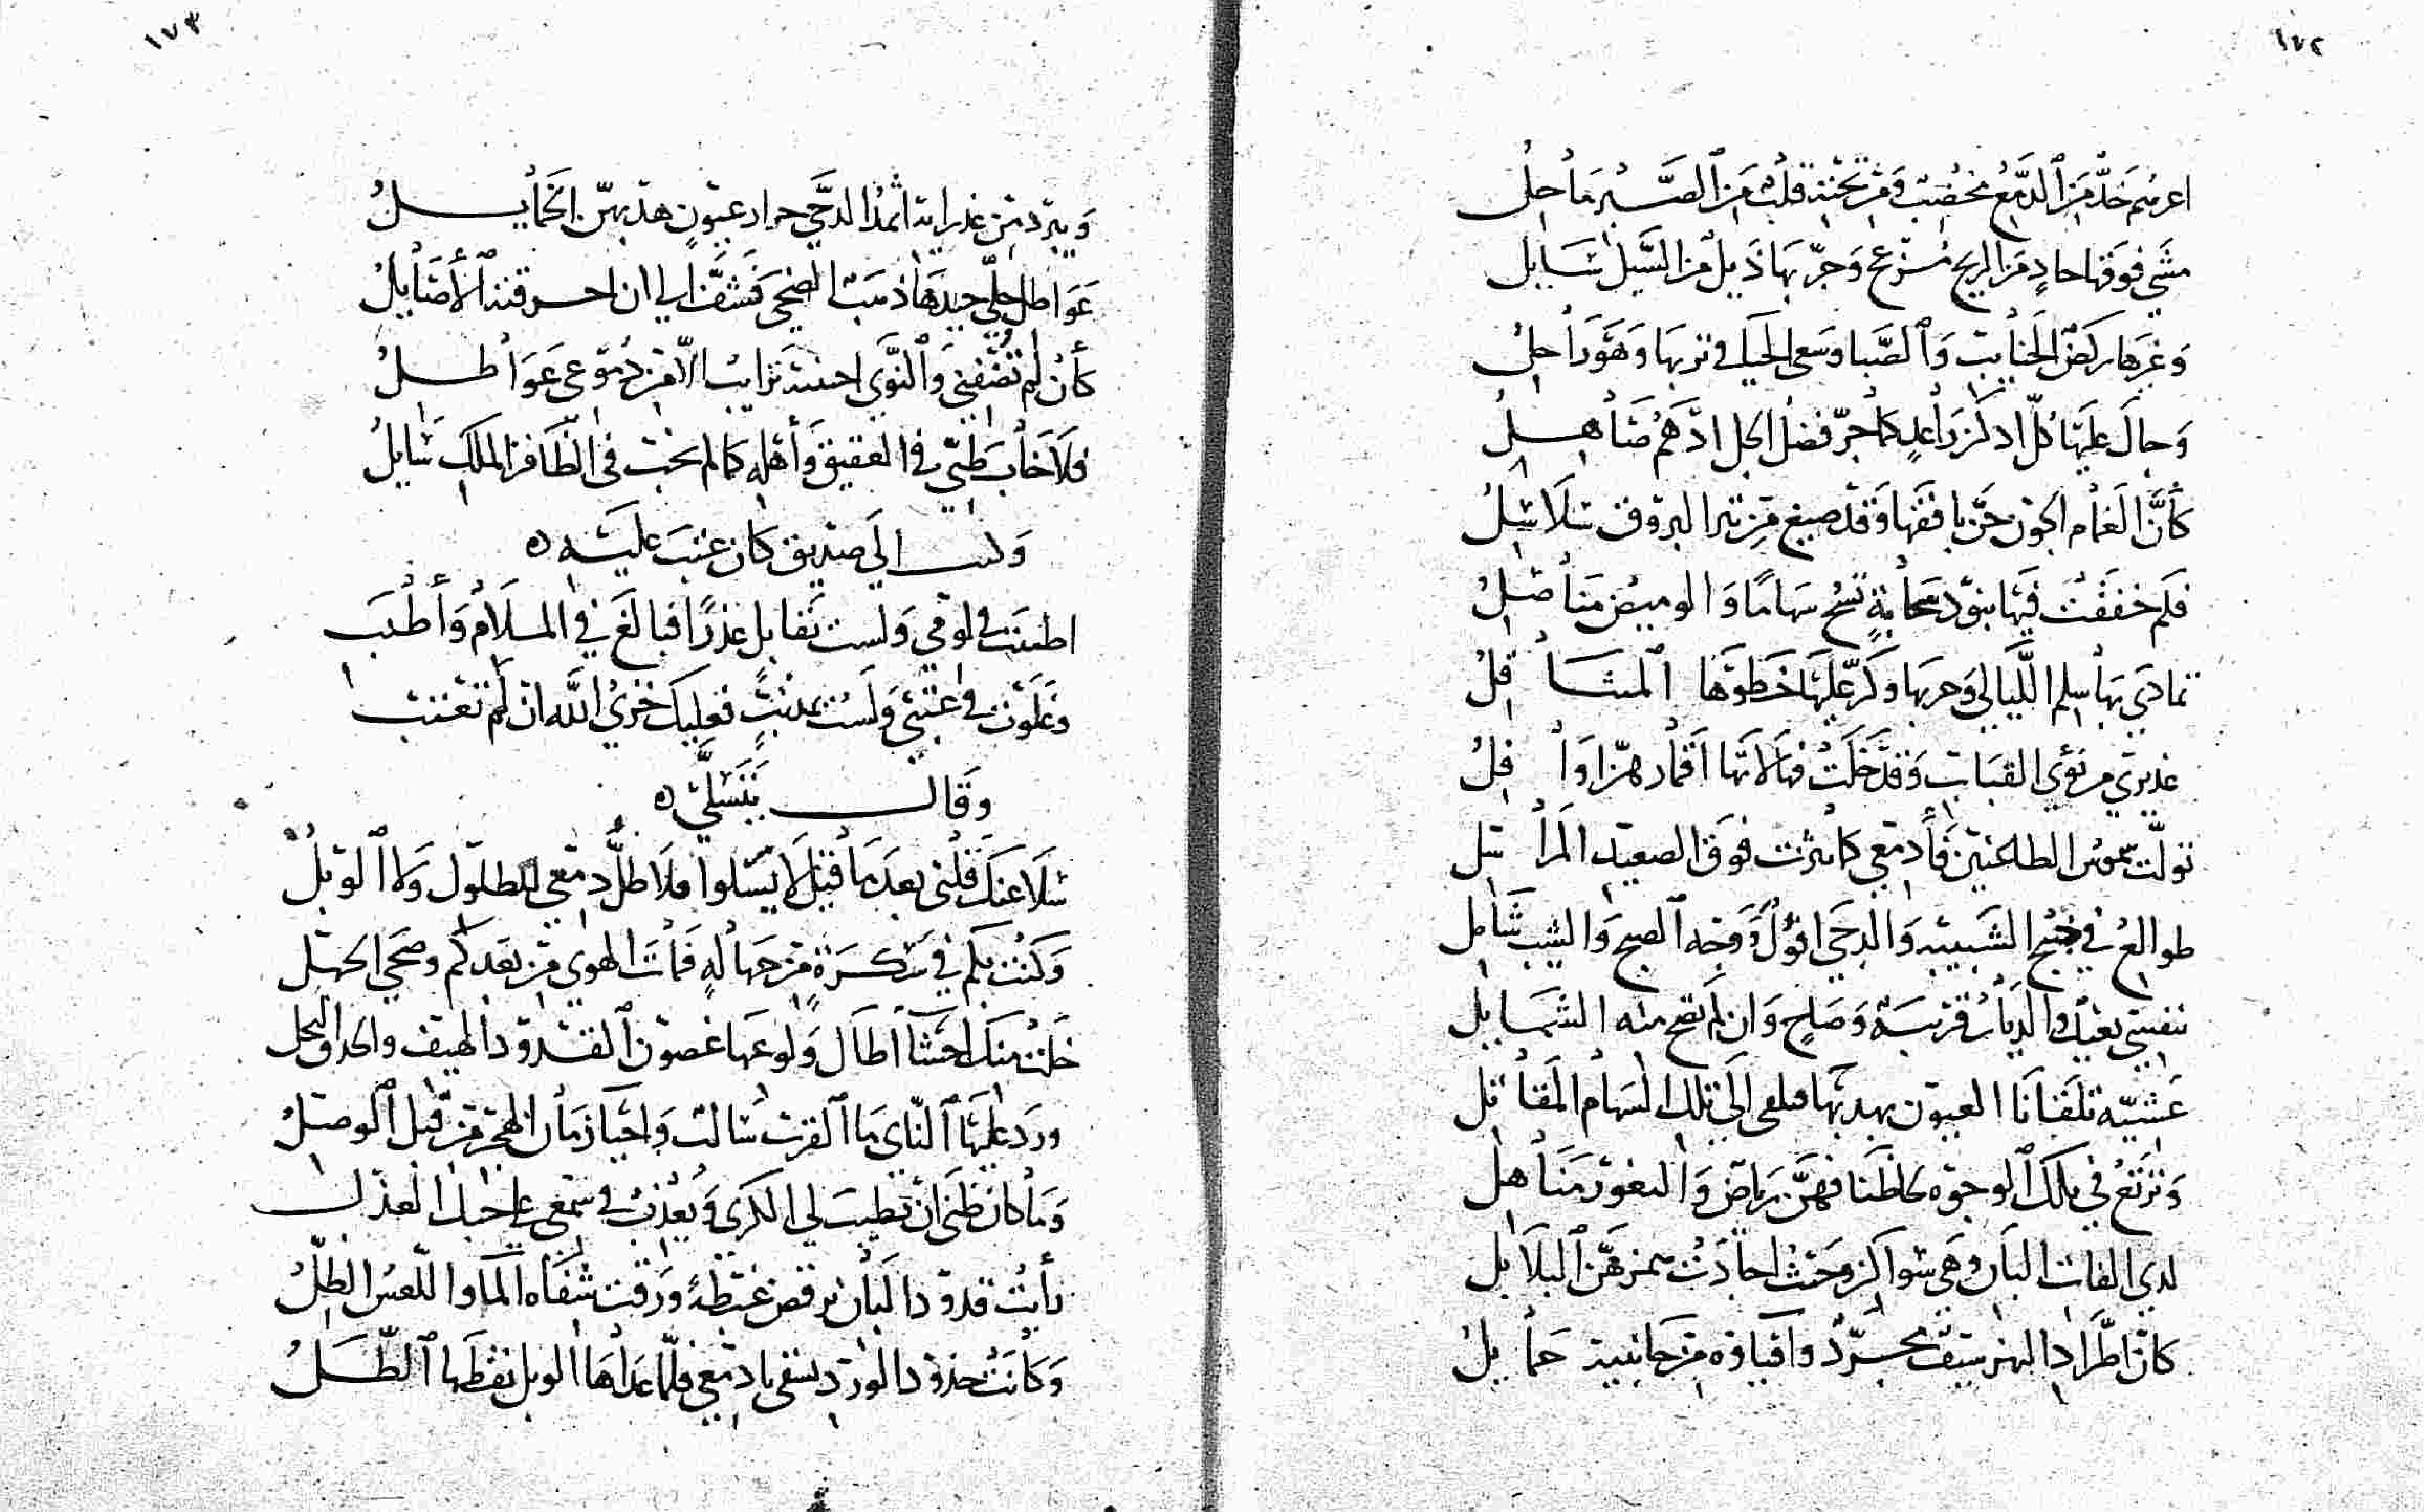 ١٧٢
اعرسم خد من الدمع مخضب ومن تحته قلب من الصبر ماحل
مشى فوقها حاد من الريح مزعج وجر بها ذيل من السيل سابل
وغيرها ركض الجنايب والصبا وسعى الحيا في تربها وهو راحل
وجال عليها كل اد كن راعد كما جر فضل الجل ادهم صاهل
كأن الغمام الجون جن بافقها وقد صيغ من تبر البروق سلاسل
فكم خفقت فيها بنود سحابة تسح سهاما والوميض مناصل
تمادى بها سلم الليالي وحربها وكر عليها خطوها المتثاقل
غديري من نؤي القباب وقد خلت فهالاتها اقمارهن اوافل
تولت شموس الظاعنين فأدمعي كما نثرت فوق الصعيد المراسل
طوالع في جنح الشبيبة والدجى افول ووجه الصبح والشيب شامل
بنفسي بعيد والديار قريبة وصاح وان لم تصح منه الشمايل
عشية تلقانا العيون بهدبها فنلقى الى تلك السهام المقاتل
وترتع في تلك الوجوه لحاظنا فهن رياض والثغور مناهل
لدى الفات البان وهي سواكن وحيث احاديث بهن البلابل
كان اطراد النهر سيف مجرد وافياؤه من جانبيه حمايل
١٧٣
ويبرد من غدرانه اثمد الدجى حداد عيون هدبهن الخمايل
عواطل حلى جيدها ذهب الضحى فشف الى ان احرقته الاصايل
كأن لم تضفني والنوى اجنبية ترايب الا من دموعي عواطل
فلا خاب ظني في العقيق وأهله كما لم يخب في الظافر الملك سايل
وكتب الى صديق كان عتب عليه
اطنبت في لومي ولست تقابل عذرا فبالغ في الملام وأطنب
وغلوت في عتبي ولست بمذنب فعليك خزي الله ان لم تعتب
وقال يتسلى
سلا عنك قلبي بعدما قيل لا يسلوا فلا طل دمعي للطلول ولا الوبل
وكنت بكم في سكرة من جهالة فمات الهوى من بعدكم وصحى الجهل
خلت منك احشا اطال ولوعها غصون القدود الهيف والحدق النجل
ورد عليها الناى ما القرب سالب واحيا زمان الهجر من قبل الوصل
وما كان ظني ان تطيب لي الكرى ويعذب في سمعي على حبك العذل
نأيت قدود البان ترقص غبطة ورقت شفاه الما واللعس الظل
وكانت خدود الورد تسقى بادمعي فلما عداها الوبل نقطها الطل